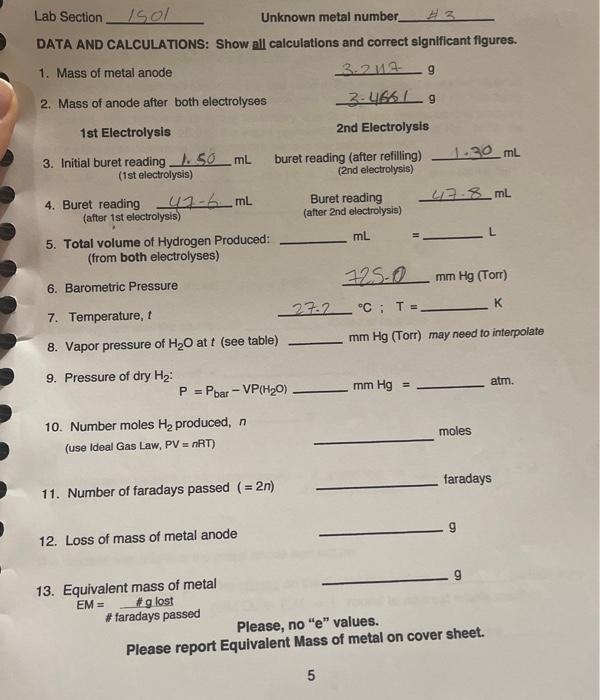 Lab Section 1501 Unknown metal number #3
DATA AND CALCULATIONS: Show all calculations and correct significant figures.
1. Mass of metal anode 3.2117 g
2. Mass of anode after both electrolyses 3.4661 g
1st Electrolysis 2nd Electrolysis
3. Initial buret reading 1.50 mL buret reading (after refilling) 1.30 mL
(1st electrolysis) (2nd electrolysis)
4. Buret reading 47.6 mL Buret reading 47.8 mL
(after 1st electrolysis) (after 2nd electrolysis)
5. Total volume of Hydrogen Produced: mL = L
(from both electrolyses)
6. Barometric Pressure 725.0 mm Hg (Torr)
7. Temperature, t 27.2 °C ; T = K
8. Vapor pressure of H₂O at t (see table) mm Hg (Torr) may need to interpolate
9. Pressure of dry H₂:
P = Pbar – VP(H₂O) mm Hg = atm.
10. Number moles H₂ produced, n
moles
(use Ideal Gas Law, PV = nRT)
11. Number of faradays passed ( = 2n) faradays
12. Loss of mass of metal anode g
13. Equivalent mass of metal g
EM = # g lost
# faradays passed
Please, no "e" values.
Please report Equivalent Mass of metal on cover sheet.
5